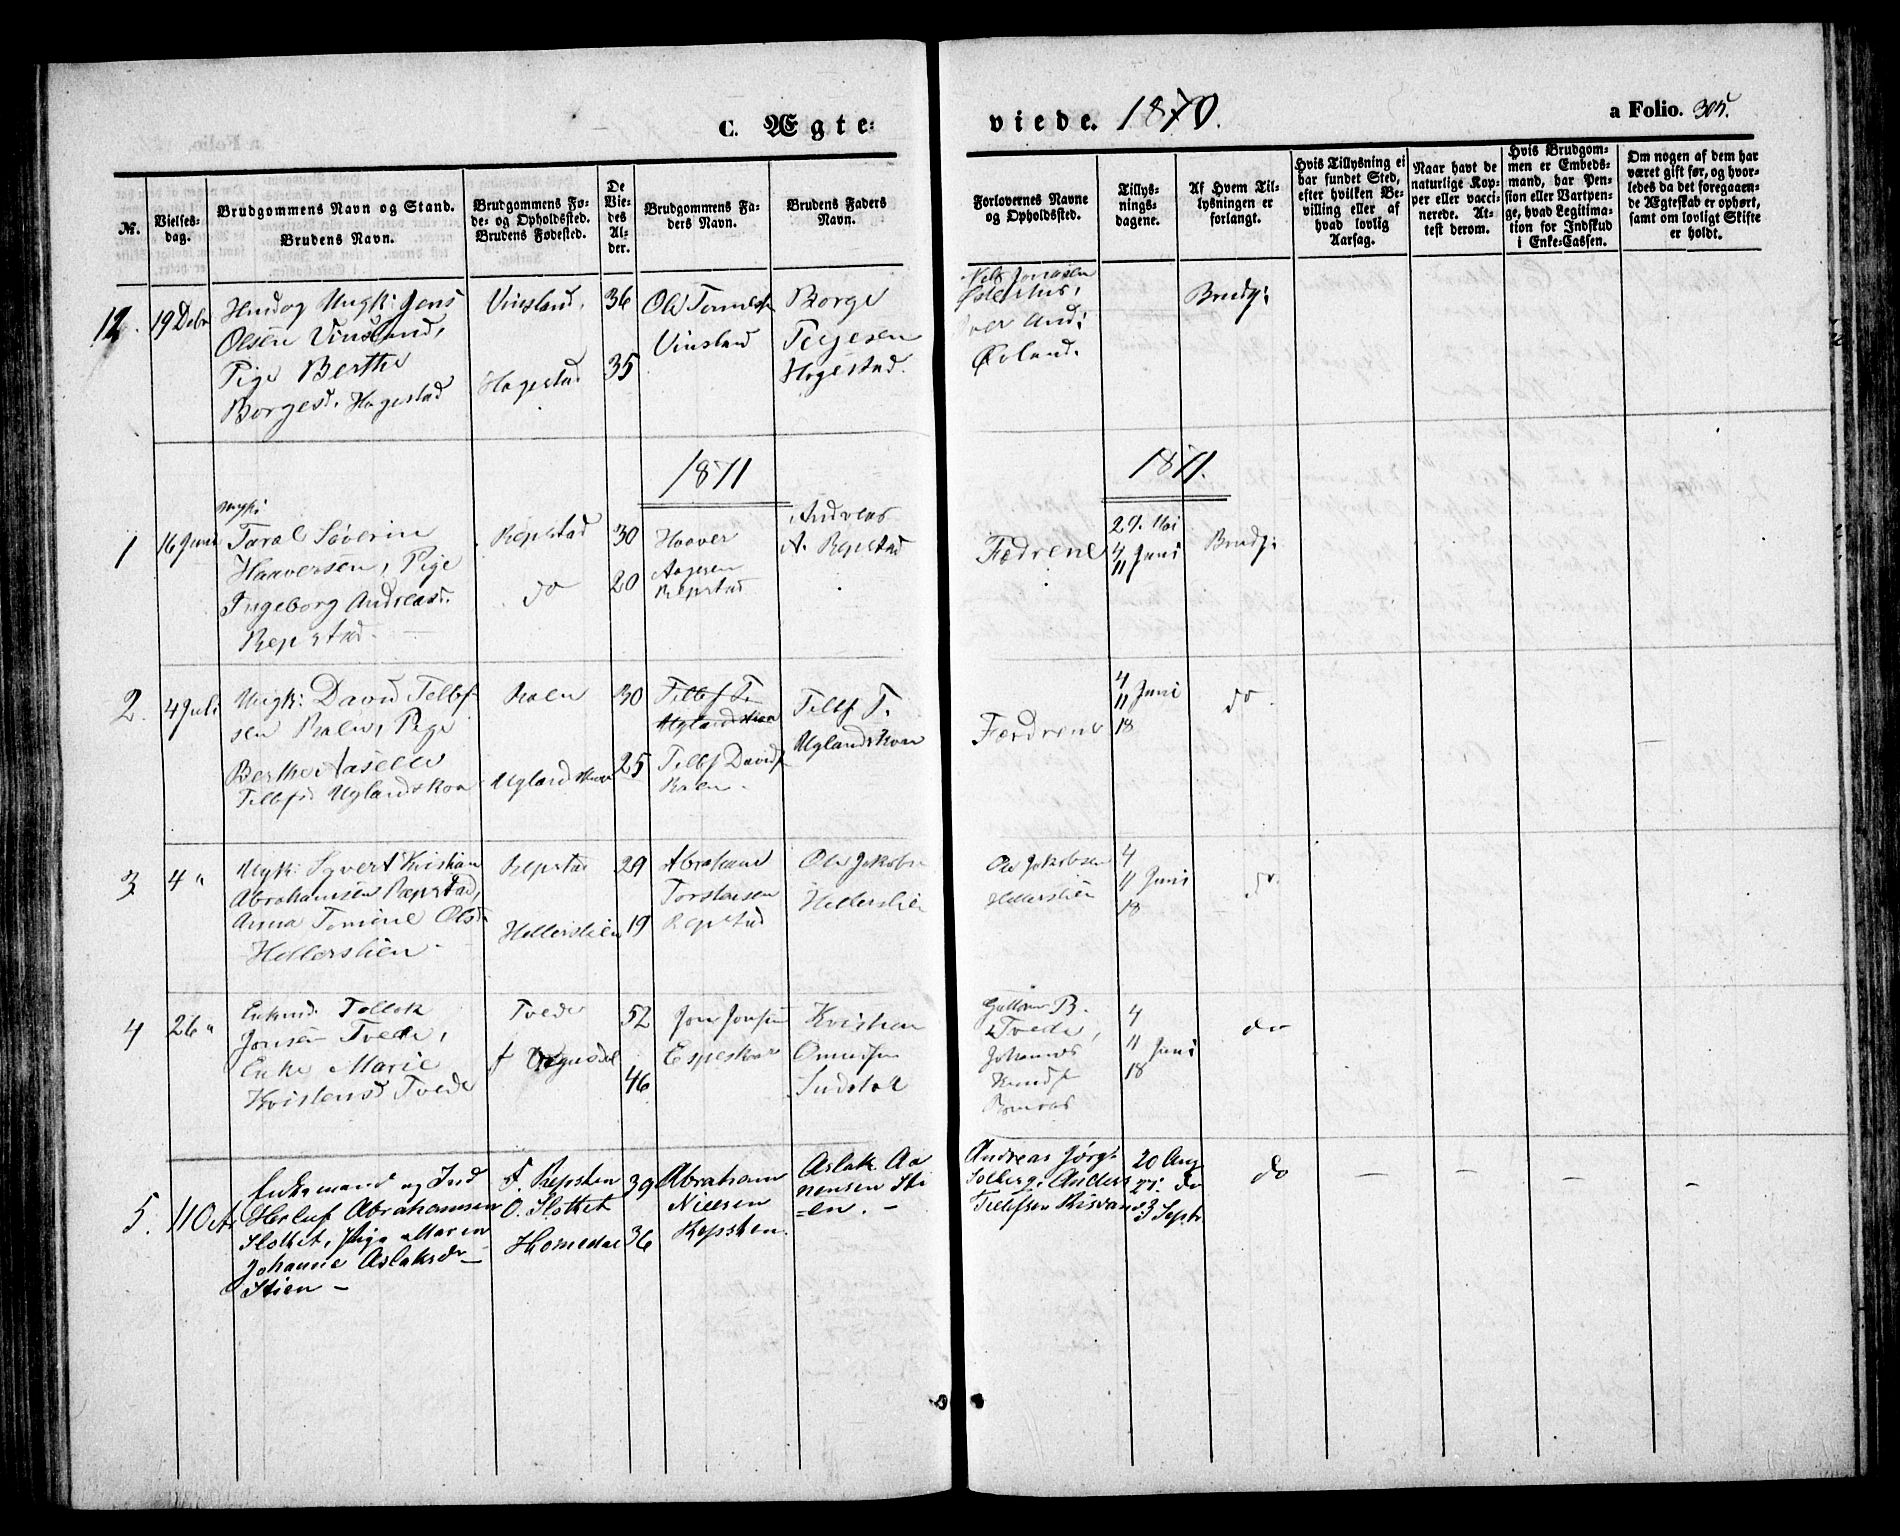 C. Ægte-
viede. 1870.
a Folio. 305.
№.
Vielses-
dag.
Brudgommens Navn og Stand.
Brudens Navn.
Brudgommens Fø-
de- og Opholdssted.
Brudens Fødested.
De
Vie-
des
Al-
der.
Brudgommens Fa-
ders Navn.
Brudens Faders
Navn.
Forlovernes Navne
og Opholdssted.
Tillys-
nings-
dagene.
Af Hvem Til-
lysningen er
forlangt.
Hvis Tillysning ei
har fundet Sted,
efter hvilken Be-
villing eller af
hvad lovlig
Aarsag.
Naar havt de
naturlige Kop-
per eller vacci-
nerede. At-
test derom.
Hvis Brudgom-
men er Embeds-
mand, har Pen-
sion eller Vartpen-
ge, hvad Legitima-
tion for Indskud
i Enke-Cassen.
Om nogen af dem har
været gift før, og hvor-
ledes da det foregaaen-
de Ægteskab er ophørt,
samt om lovligt Skifte
er holdt.
12.
19 Debr
Jens
Olsen Vinsland,
Pige Berthe
Borgesd. Hagestad
Vinsland.
Hagestad
36
35
Ole
Vinsland
Borge
Terjesen
Hagestad.
Brudg:
1871
1871.
1
16 Juni
Ungk:
Taral Søverin
Haaversen, Pige
Ingeborg Andreasd.
Repstad
Repstad
do
30
20
Haaver
Aagesen
Repstad
Andreas
A. Repstad
Fædrene
27. Mai
4
11 Juni
Brudg:
2.
4 Juli
Ungk: David Tellef-
sen Kalen, Pige
Berthe Aselle
Tellefsd Uglandskaa
Kalen
Uglandskaa
30
25
Tellef T.
Uglandskaa
Tellef Davids
Kalen.
Tellef T.
Uglandskaa
Fædrene
4
11 Juni
18
do.
3
4 "
Ungk: Syvert Kristian
Abrahamsen Repstad,
Anna Tomine Olsd.
Hellerslien
Repstad
Hellerslien
29
19
Abraham
Torstensen
Repstad
Ole Jakobs
Hellerslien
Ole Jakobsen
Hellerslien
4
11 Juni
18
do.
4
26 "
Enkmd. Tellek
Jonsen Tvede,
Enke Marie
Kristensd Tvede
Tvede
52
46
Jon Jonsen
Kristen
Omundsen
B.
Tvede,
Johannes
Knuds
4
11 Juni
18
do
5.
1 Oct.
Enkemand og Ind
Herluf Abrahamsen
Slottet, Pige Maren
Johanne Aslaksd
Stien –
F. Repsten
O. Slottet
Homedal
39
36
Abraham
Nielsen
Repsten.
Aslak Aa
nensen Sti
=en. –
Andreas Jørg.
Solberg. Anders
Tellefsen Risvand
20 Aug
27. do
3 Septr
do
– – – –